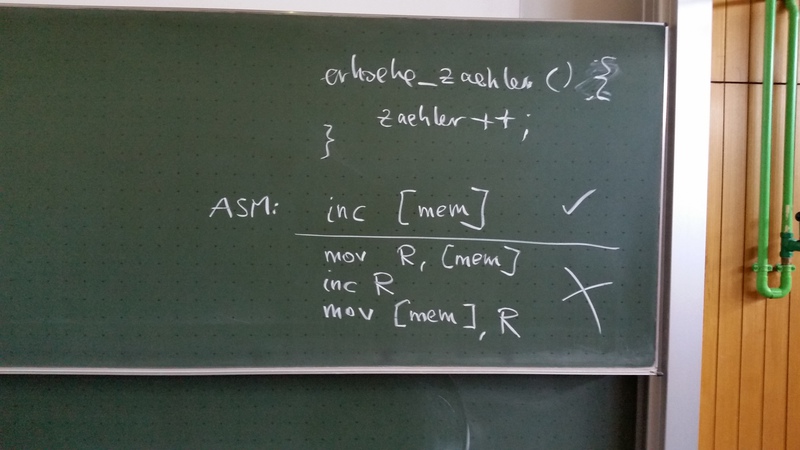 erhoehe_zaehler () {
zaehler ++;
}
ASM: inc [mem] ✓
mov R, [mem]
inc R
mov [mem], R